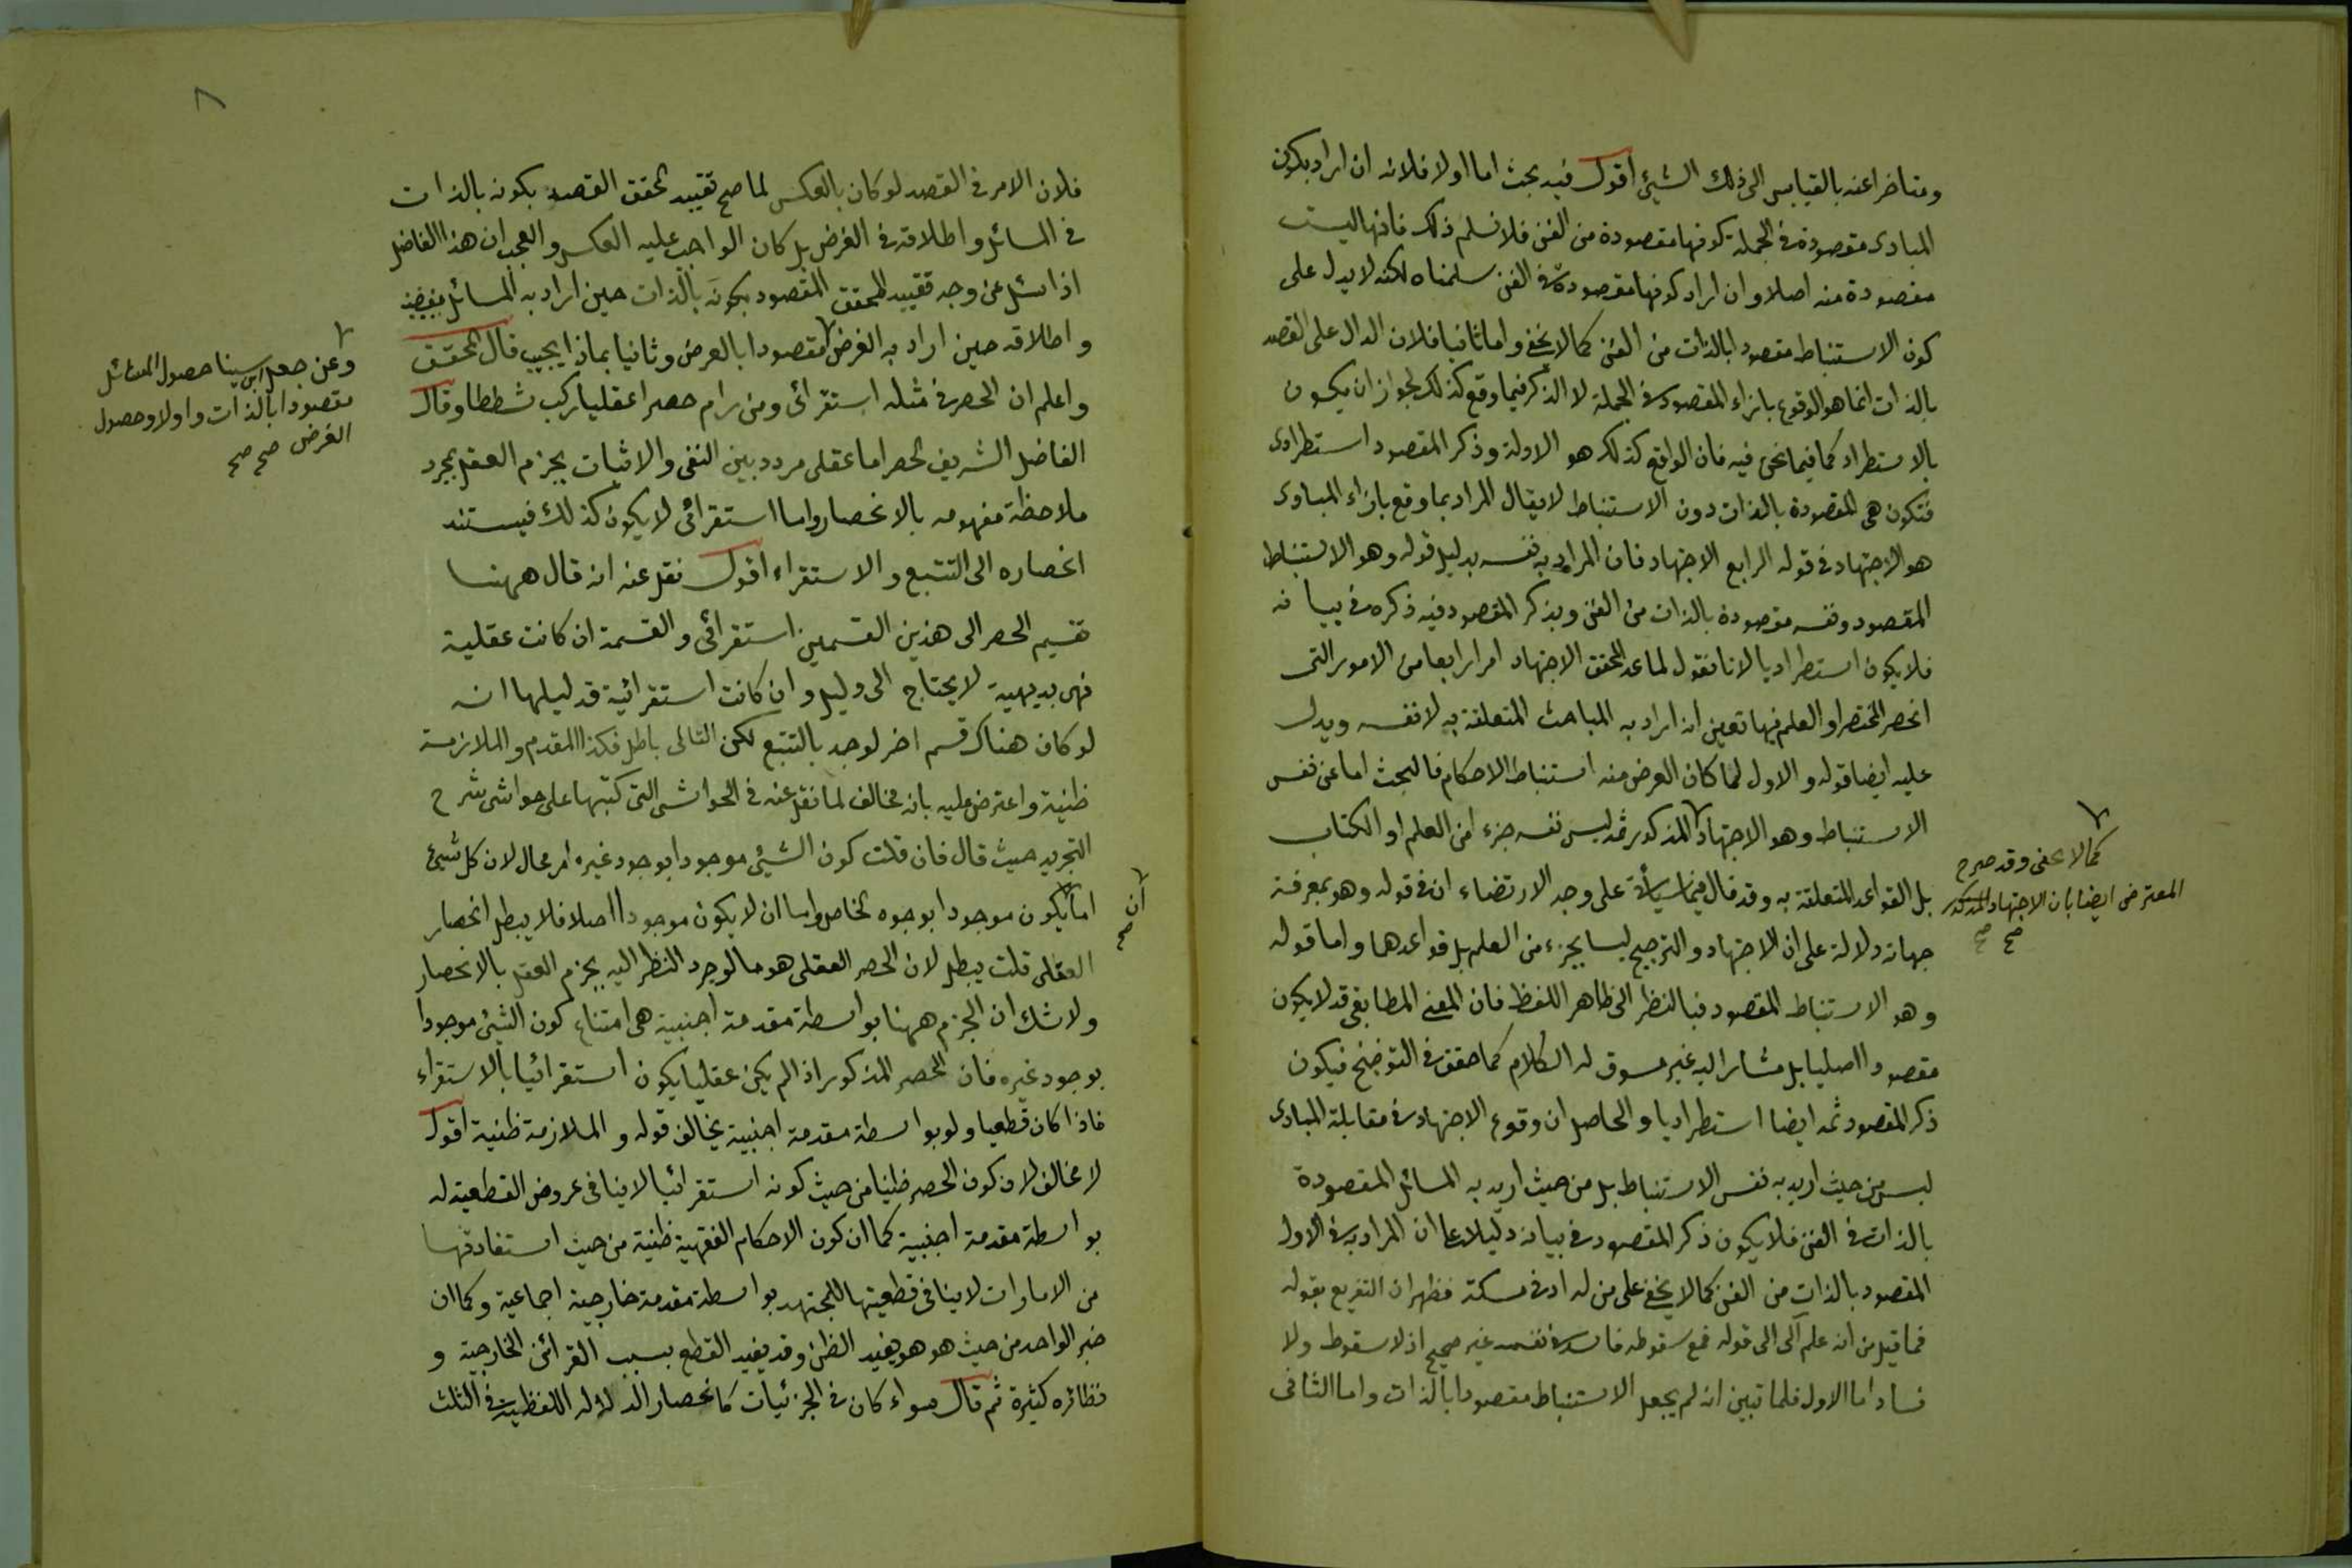 ومتاخرا عنه بالقياس الى ذلك الشيئ اقول فيه بحث اما اولا فلانه ان اراد بكون
المبادى مقصودة فى الجملة كونها مقصودة من الفن فلا نسلم ذلك فانها ليست
مقصودة منه اصلا وان اراد كونها مقصودة فى الفن سلمناه لكنه لا يدل على
كون الاستنباط مقصودا بالذات من الفن كما لا يخفى واما ثانيا فلان الدال على القصد
بالذات انما هو الوقوع بازاء المقصود فى الجملة لا الذكر فيما وقع كذلك لجواز ان يكون
بالاستطراد كما فيما نحن فيه فان الواقع كذلك هو الادلة وذكر المقصود استطرادى
فتكون هى المقصودة بالذات دون الاستنباط لا يقال المراد بما وقع بازاء المبادى
هو الاجتهاد فى قوله الرابع الاجتهاد فان المراد به نفسه بدليل قوله وهو الاستنباط
المقصود ونفسه مقصودة بالذات من الفن وبذكر المقصود فيه ذكره فى بيانه
فلا يكون استطراديا لانا نقول لما عد المحقق الاجتهاد امرا رابعا من الامور التى
انحصر المختصر او العلم فيها تعين انه اراد به المباحث المتعلقة به لا نفسه ويدل
عليه ايضا قوله والاول لما كان الغرض منه استنباط الاحكام فالبحث اما عن نفس
الاستنباط وهو الاجتهاد المذكور ثمه ليس نفسه جزء من العلم او الكتاب
كما لا يخفى وقد صرح
المعترض ايضا بان الاجتهاد المذكور
صح صح
بل القواعد المتعلقة به وقد قال فيما سيأتى على وجه الارتضاء ان فى قوله وهو بمعرفة
جهاته دلالة على ان الاجتهاد والترجيح ليسا بجزء من العلم بل قواعدهما واما قوله
وهو الاستنباط المقصود فبالنظر الى ظاهر اللفظ فان المعنى المطابقى قد لا يكون
مقصودا اصليا بل مشارا اليه غير مسوق له الكلام كما حقق فى التوضيح فيكون
ذكر المقصود ثمه ايضا استطراديا والحاصل ان وقوع الاجتهاد فى مقابلة المبادى
ليس من حيث اريد به نفس الاستنباط بل من حيث اريد به المسائل المقصودة
بالذات فى الفن فلا يكون ذكر المقصود فى بيانه دليلا على ان المراد به فى الاول
المقصود بالذات من الفن كما لا يخفى على من له ادنى مسكة فظهر ان التفريع بقوله
فما قيل من انه علم آلى الى قوله فمع سقوطه فاسد فى نفسه غير صحيح اذ لا سقوط ولا
فساد اما الاول فلما تبين انه لم يجعل الاستنباط مقصودا بالذات واما الثانى
٨
فلان الامر فى القصد لو كان بالعكس لما صح تقييد المحقق القصد بكونه بالذات
فى المسائل واطلاقه فى الغرض بل كان الواجب عليه العكس والعجب ان هذا الفاضل
اذا سئل عن وجه تقييد المحقق المقصود بكونه بالذات حين اراد به المسائل
واطلاقه حين اراد به الغرض مقصودا بالعرض وثانيا بماذا يجيب قال المحقق
وعن جعل ابن سينا حصول المسائل
مقصودا بالذات واولا وحصول
الغرض صح صح
واعلم ان الحصر فى مثله استقرائى ومن رام حصرا عقليا ركب شططا وقال
الفاضل الشريف الحصر اما عقلى مردد بين النفى والاثبات يجزم العقل بمجرد
ملاحظة مفهومه بالانحصار واما استقرائى لا يكون كذلك فيستند
انحصاره الى التتبع والاستقراء اقول نقل عنه انه قال ههنا
تقسيم الحصر الى هذين القسمين استقرائى والقسمة ان كانت عقلية
فهى بديهية لا يحتاج الى دليل وان كانت استقرائية فدليلها انه
لو كان هناك قسم اخر لوجد بالتتبع لكن التالى باطل فكذا المقدم والملازمة
ظنية واعترض عليه بانه مخالف لما نقل عنه فى الحواشى التى كتبها على حواشى شرح
التجريد حيث قال فان قلت كون الشيئ موجودا بوجود غيره امر محال لان كل شيئ
اما يكون موجودا بوجوده الخاص واما ان لا يكون موجودا اصلا فلا يبطل انحصار
ان
صح
العقلى قلت يبطل لان الحصر العقلى هو ما لو جرد النظر اليه يجزم العقل بالانحصار
ولا شك ان الجزم ههنا بواسطة مقدمة اجنبية هى امتناع كون الشيئ موجودا
بوجود غيره فان الحصر المذكور اذا لم يكن عقليا يكون استقرائيا بالاستقراء
فاذا كان قطعيا ولو بواسطة مقدمة اجنبية يخالف قوله والملازمة ظنية اقول
لا مخالف لان كون الحصر ظنيا من حيث كونه استقرائيا لا ينافى عروض القطعية له
بواسطة مقدمة اجنبية كما ان كون الاحكام الفقهية ظنية من حيث استفادتها
من الامارات لا ينافى قطعيتها للمجتهد بواسطة مقدمة خارجية اجماعية وكما ان
خبر الواحد من حيث هو هو يفيد الظن وقد يفيد القطع بسبب القرائن الخارجية و
نظائره كثيرة ثم قال سواء كان فى الجزئيات كانحصار الدلالة اللفظية فى الثلث